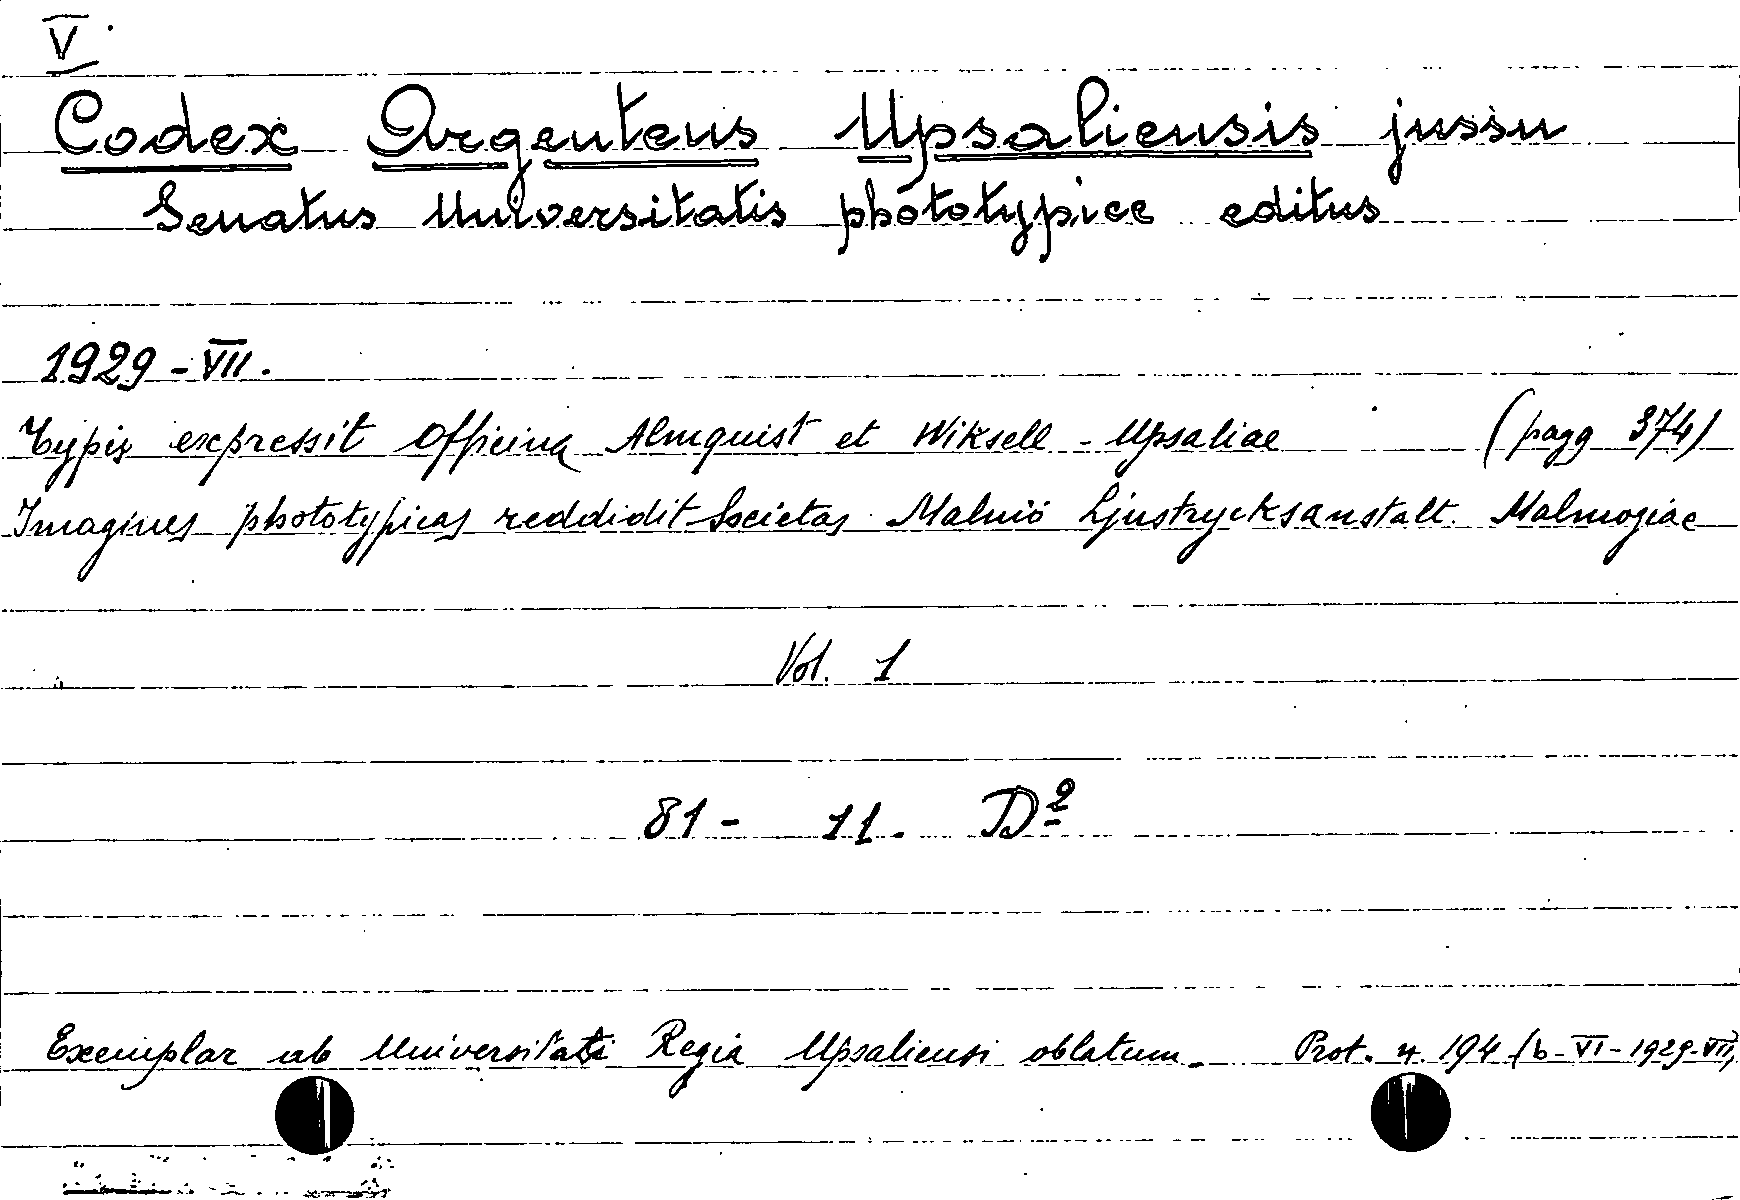 V
Codex Argenteus Upsaliensis jussu
Senatus Universitatis phototypice editus
1929 - VII.
Typis expressit Officina Almquist et Wiksell - Upsaliae (pagg 374)
Imagines phototypicas reddidit Societas Malmö Ljustrycksanstalt. Malmogiae
Vol. 1
81 - 11. D2
Exemplar ab Universitati Regia Upsaliensi oblatum. Prot. n. 194 (6-VI-1929-VII)